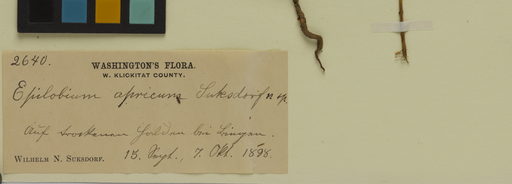 2640.
WASHINGTON'S FLORA.
W. KLICKITAT COUNTY.
Epilobium apricum Suksdorf n. sp.
Auf trockenen Feldern bei Bingen.
WILHELM N. SUKSDORF. 15. Sept., 7. Okt. 1898.